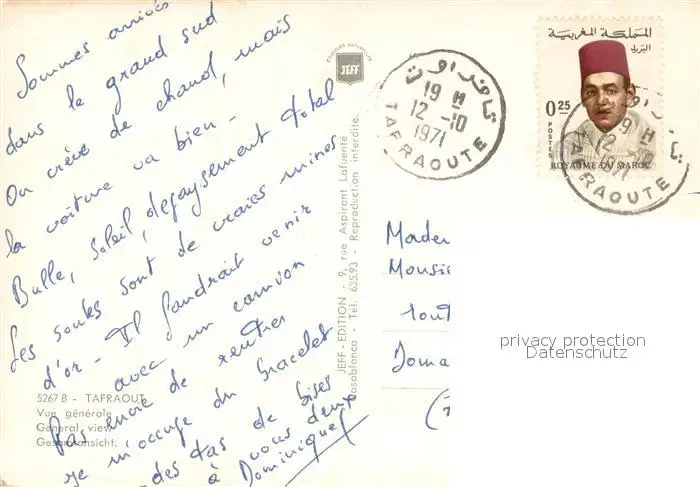 Sommes arrivés
dans le grand sud
On crève de chaud, mais
la voiture va bien -
Bulle, soleil, dépaysement total
Les souks sont de vraies mines
d'or - Il faudrait venir
avec un camion
Pas envie de rentrer
je m'occupe du bracelet
des tas de bises
à vous deux
Dominique
5267 B - TAFRAOUT
Vue générale
General view
Gesamtansicht.
COULEURS NATURELLES
JEFF
JEFF-EDITION - 9, rue Aspirant Lafuenté
Casablanca - Tél. 635.93 - Reproduction interdite.
تافراوت
19 H
12 -10
1971
TAFRAOUTE
المملكة المغربية
البريد
0.25
POSTES
ROYAUME DU MAROC
19 H
12 -10
1971
TAFRAOUTE
Mousi
privacy protection
Datenschutz